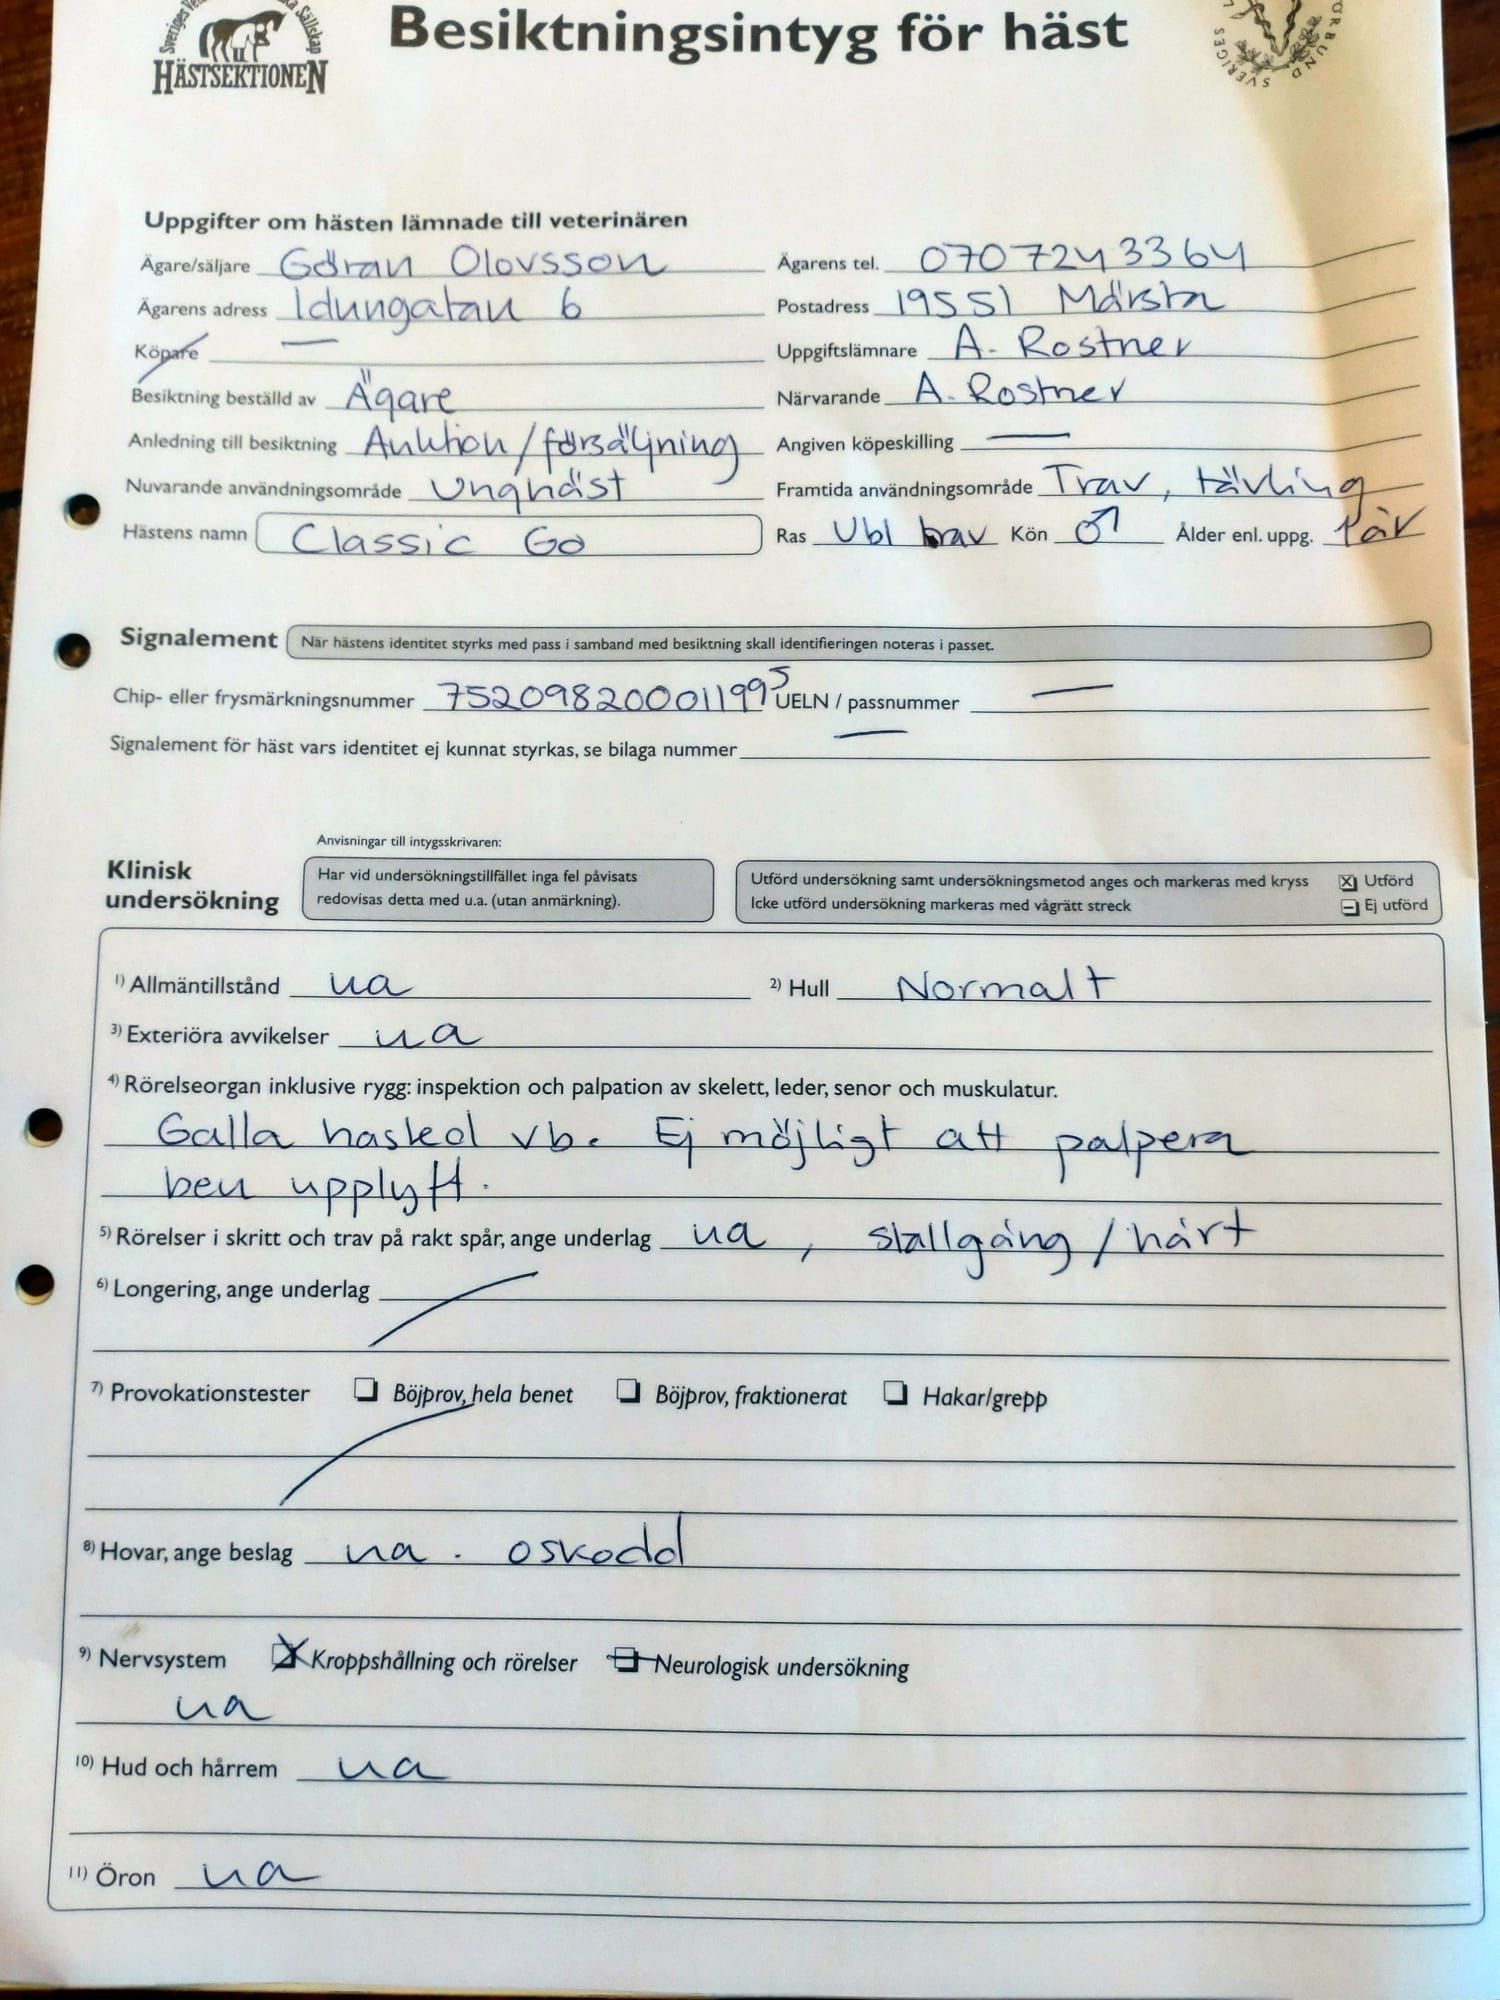 Besiktningsintyg för häst
HÄSTSEKTIONEN
Uppgifter om hästen lämnade till veterinären
Ägare/säljare Göran Olovsson Ägarens tel. 0707243364
Ägarens adress Idungatan 6 Postadress 19551 Märsta
Köpare — Uppgiftslämnare A. Rostner
Besiktning beställd av Ägare Närvarande A. Rostner
Anledning till besiktning Auktion/försäljning Angiven köpeskilling —
Nuvarande användningsområde Unghäst Framtida användningsområde Trav, tävling
Hästens namn Classic Go Ras Vbl trav Kön ♂ Ålder enl. uppg. 1 år
Signalement När hästens identitet styrks med pass i samband med besiktning skall identifieringen noteras i passet.
Chip- eller frysmärkningsnummer 752098200011995 UELN / passnummer —
Signalement för häst vars identitet ej kunnat styrkas, se bilaga nummer —
Anvisningar till intygsskrivaren:
Klinisk undersökning
Har vid undersökningstillfället inga fel påvisats
redovisas detta med u.a. (utan anmärkning).
Utförd undersökning samt undersökningsmetod anges och markeras med kryss Utförd
Icke utförd undersökning markeras med vågrätt streck Ej utförd
1) Allmäntillstånd ua 2) Hull Normalt
3) Exteriöra avvikelser ua
4) Rörelseorgan inklusive rygg: inspektion och palpation av skelett, leder, senor och muskulatur.
Galla hasled vb. Ej möjligt att palpera
ben upplyft.
5) Rörelser i skritt och trav på rakt spår, ange underlag ua, stallgång/hårt
6) Longering, ange underlag
7) Provokationstester Böjprov, hela benet Böjprov, fraktionerat Hakar/grepp
8) Hovar, ange beslag ua. oskodd
9) Nervsystem Kroppshållning och rörelser Neurologisk undersökning
ua
10) Hud och hårrem ua
11) Öron ua